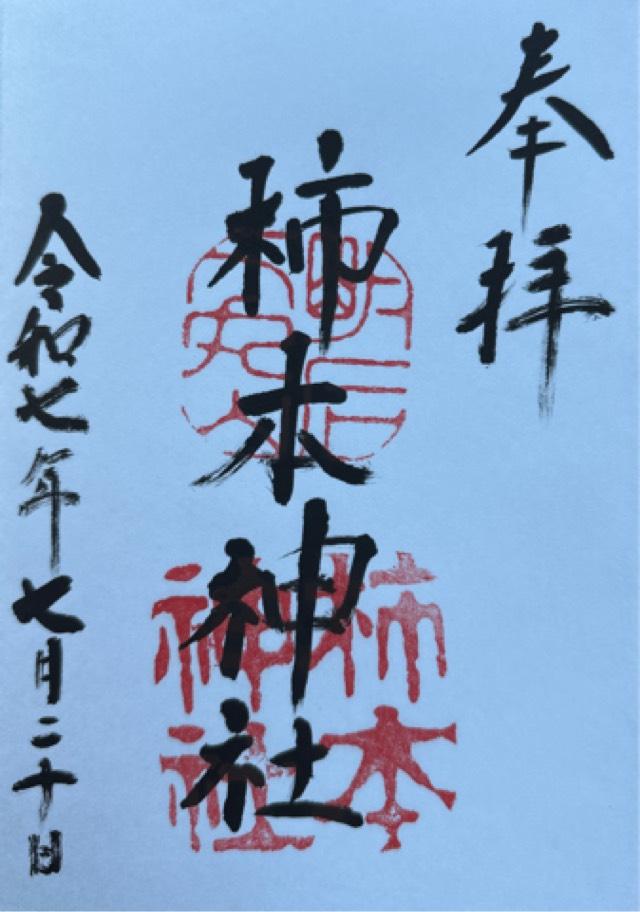 奉拝
柿本神社
柿本
神社
令和七年七月二十日